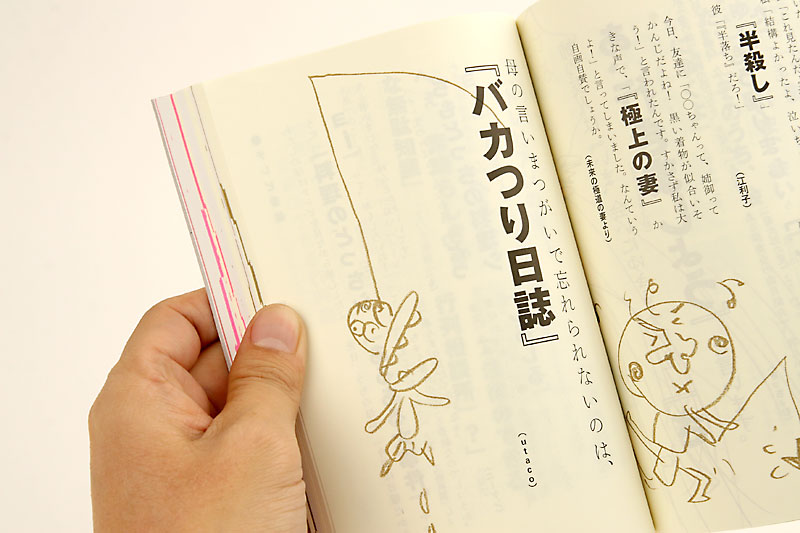 「これ見たんだ
「結構よかったよ、泣いち
彼「『半落ち』だろ！」
『半殺し』
（江利子）
今日、友達に「〇〇ちゃんって、姉御って
かんじだよね！　黒い着物が似合いそ
う！」と言われたんです。すかさず私は大
きな声で、「『極上の妻』か
よ！」と言ってしまいました。なんていう
自画自賛でしょうか。
（未来の極道の妻より）
母の言いまつがいで忘れられないのは、
『バカつり日誌』
（utaco）